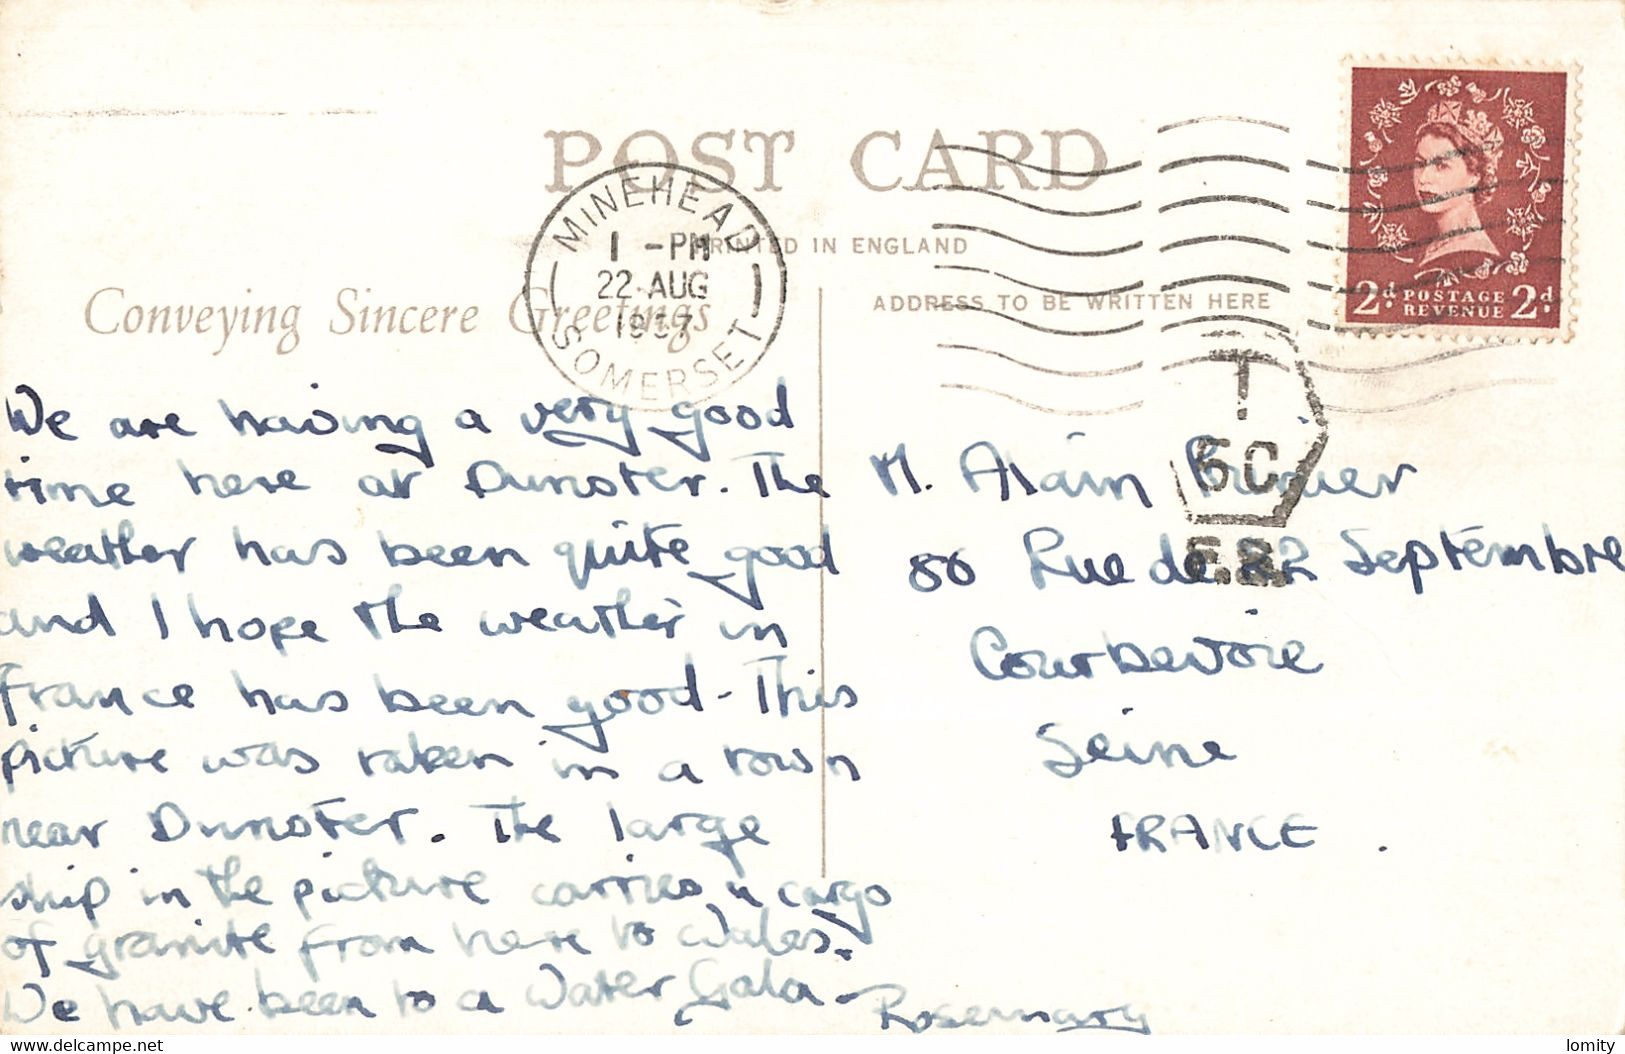 POST CARD
MINEHEAD
1 - PM
22 AUG
1957
SOMERSET
PRINTED IN ENGLAND
Conveying Sincere Greetings
ADDRESS TO BE WRITTEN HERE
2d. POSTAGE REVENUE 2d.
T
50
F.B.
We are having a very good
time here at Dunster. The
weather has been quite good
and I hope the weather in
France has been good - This
picture was taken in a town
near Dunster. The large
ship in the picture carries a cargo
of granite from here to Wales.
We have been to a Water Gala -
Rosemary
M. Alain
80 Rue de 22 Septembre
Courbevoie
Seine
FRANCE.
www.delcampe.net
lomity